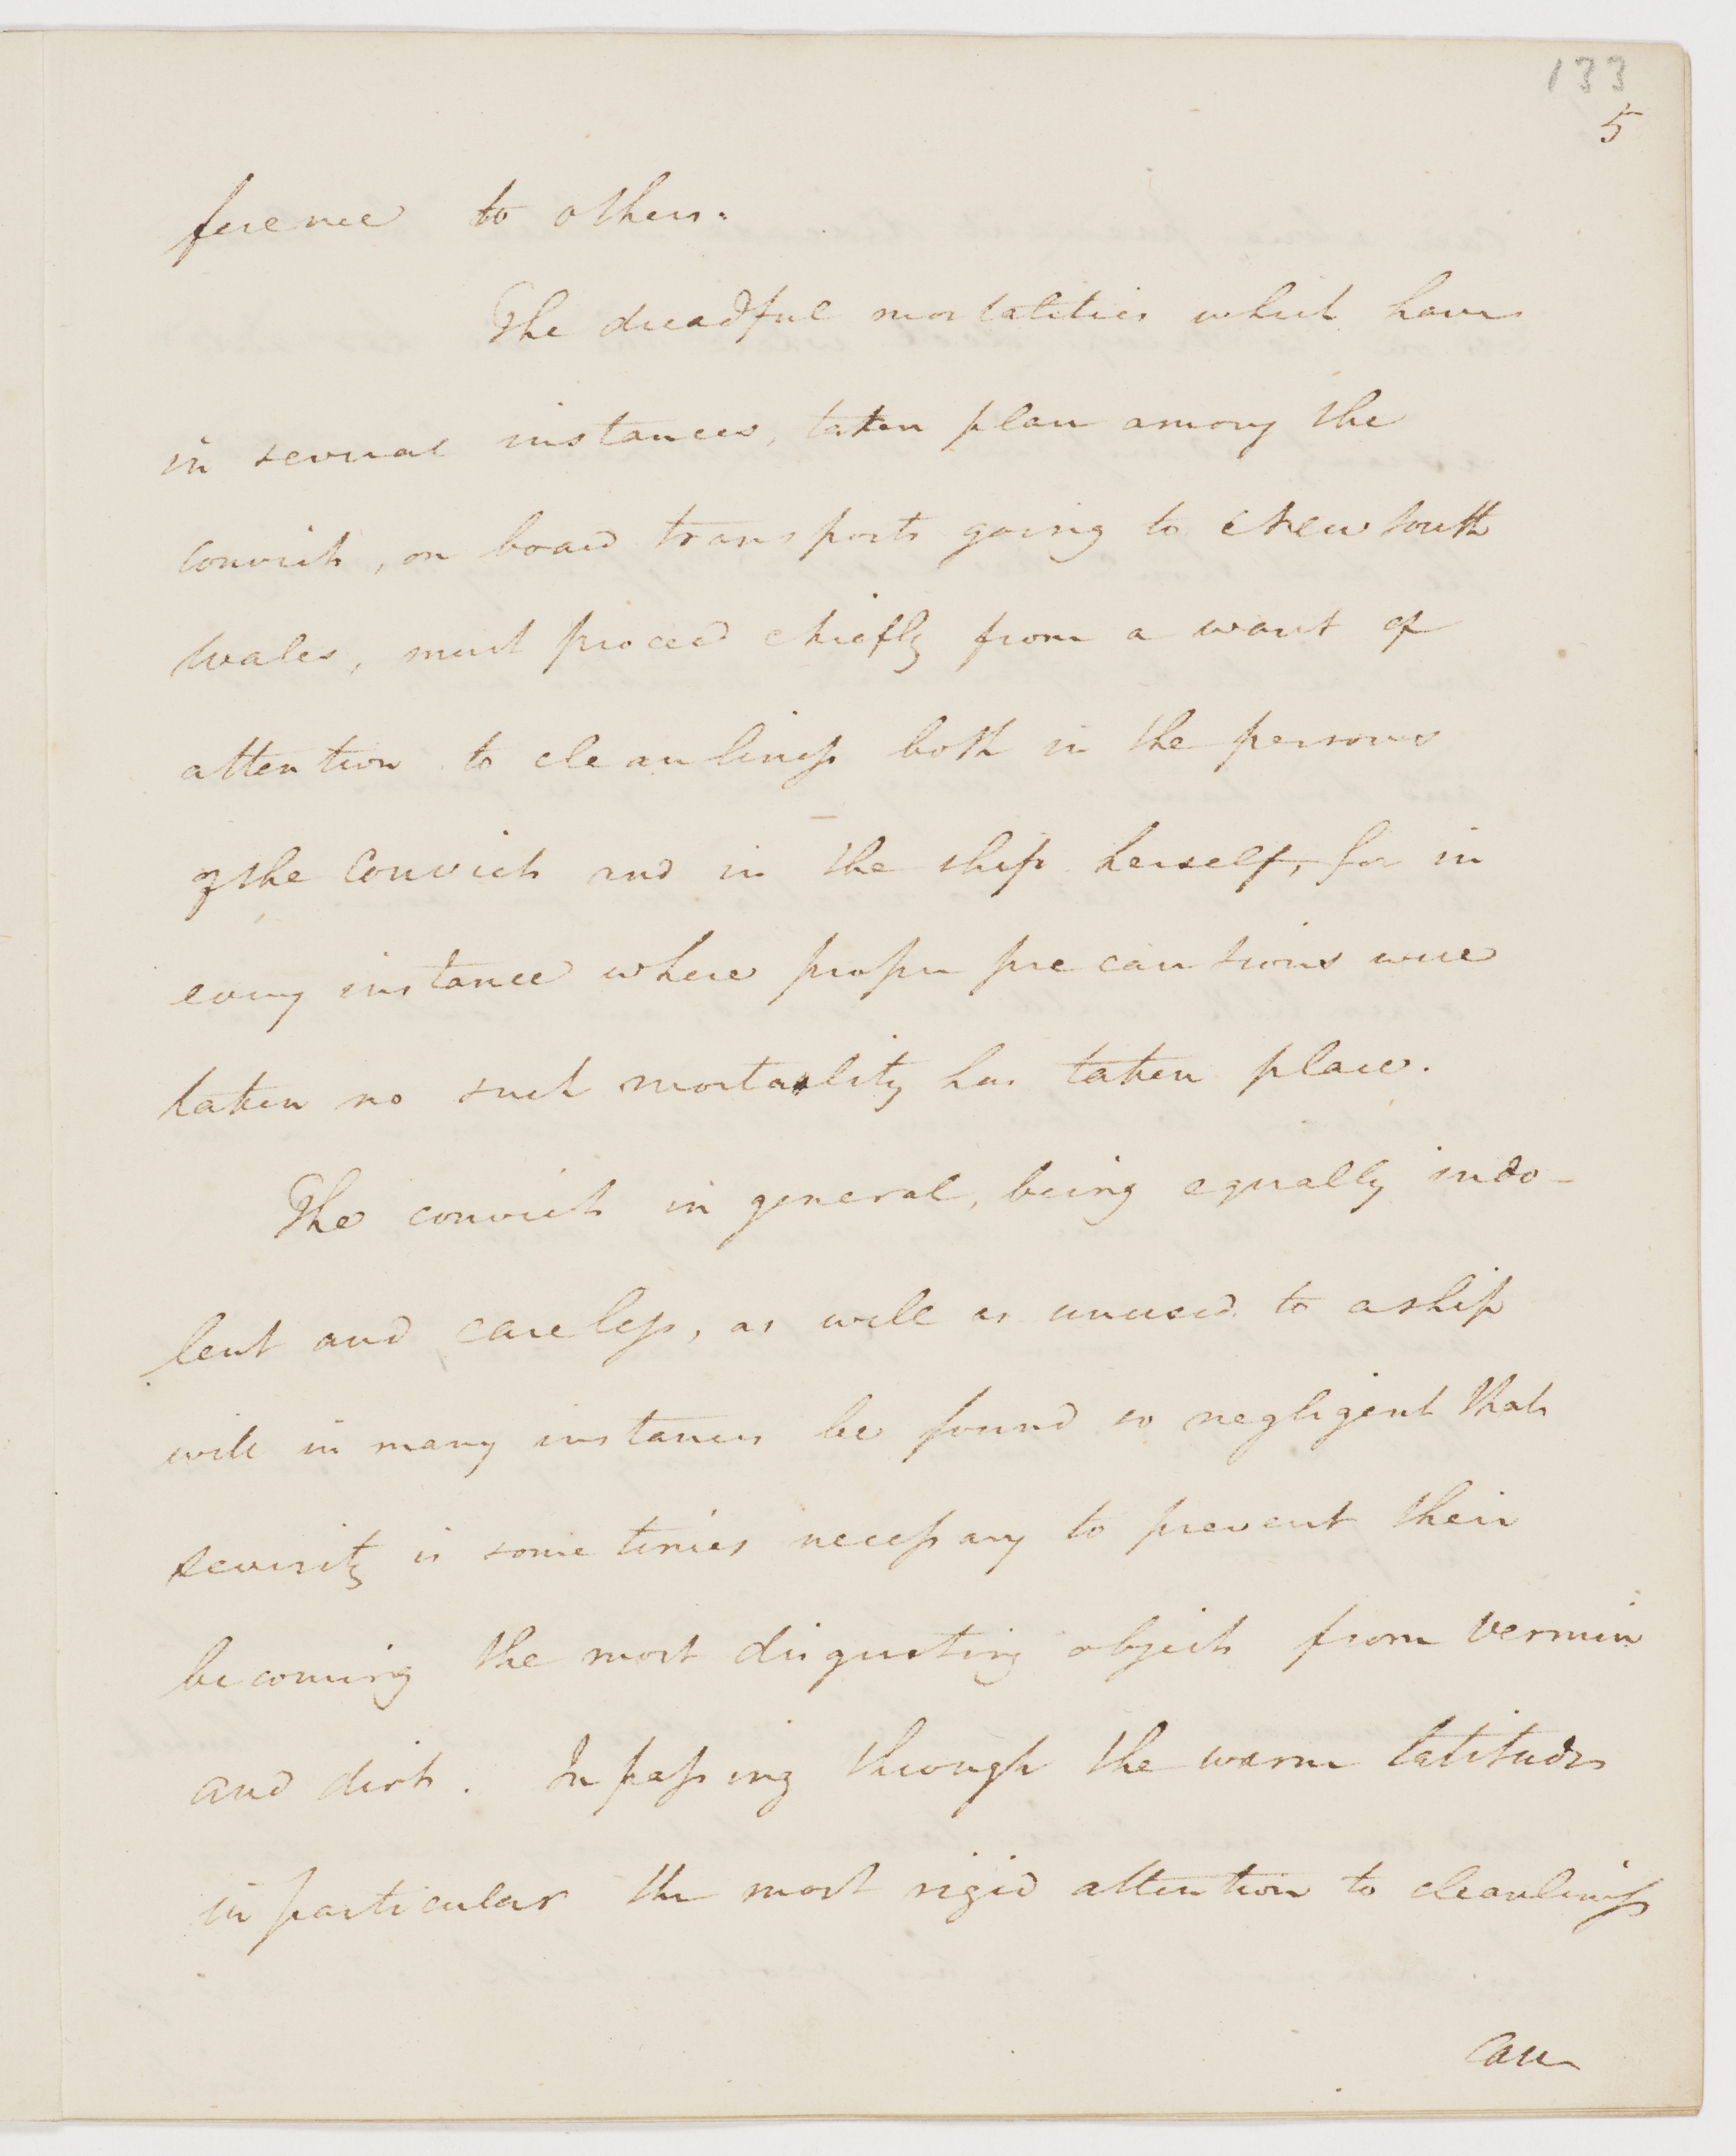 133
5
ference to others.
The dreadful mortalities which have
in several instances, taken place among the
convicts, on board transports going to New South
Wales, must proceed chiefly from a want of
attention to cleanliness both in the persons
of the Convicts and in the ship herself, for in
every instance where proper precautions were
taken no such mortality has taken place.
The convicts in general, being equally indo-
lent and careless, as well as unused to a ship
will in many instances be found so negligent that
severity is sometimes necessary to prevent their
becoming the most disgusting objects from vermin
and dirt. In passing through the warm latitudes
in particular the most rigid attention to cleanliness